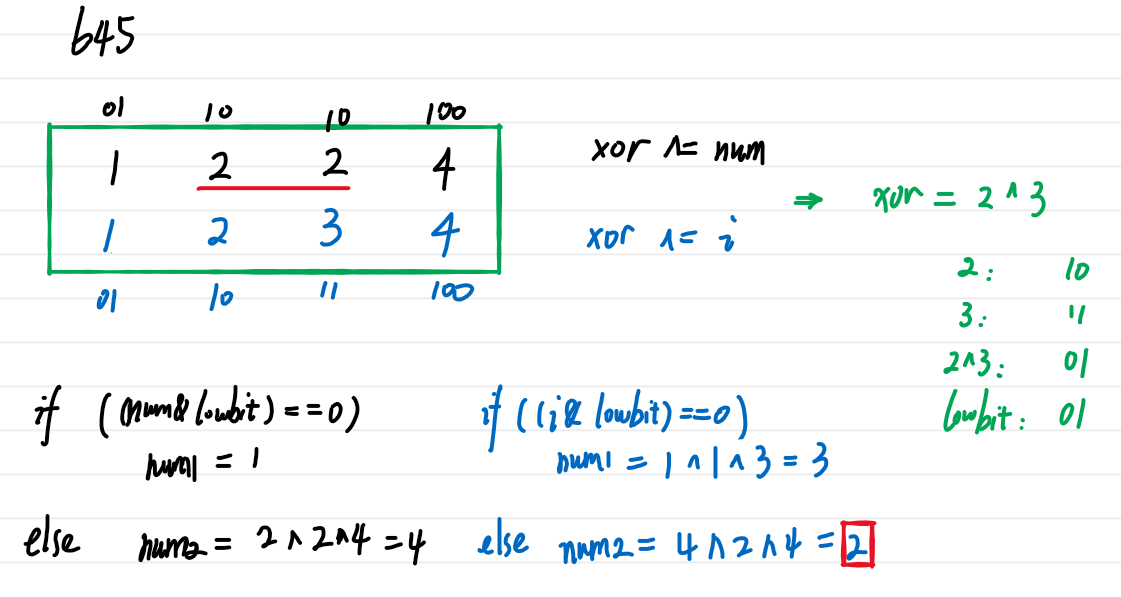 645
01 10 10 100
1 2 2 4
1 2 3 4
01 10 11 100
xor ^= num
xor ^= i
⇒ xor = 2 ^ 3
2: 10
3: 11
2^3: 01
lowbit: 01
if ((num & lowbit) == 0)
num1 = 1
else num2 = 2 ^ 2 ^ 4 = 4
if ((i & lowbit) == 0)
num1 = 1 ^ 1 ^ 3 = 3
else num2 = 4 ^ 2 ^ 4 = 2